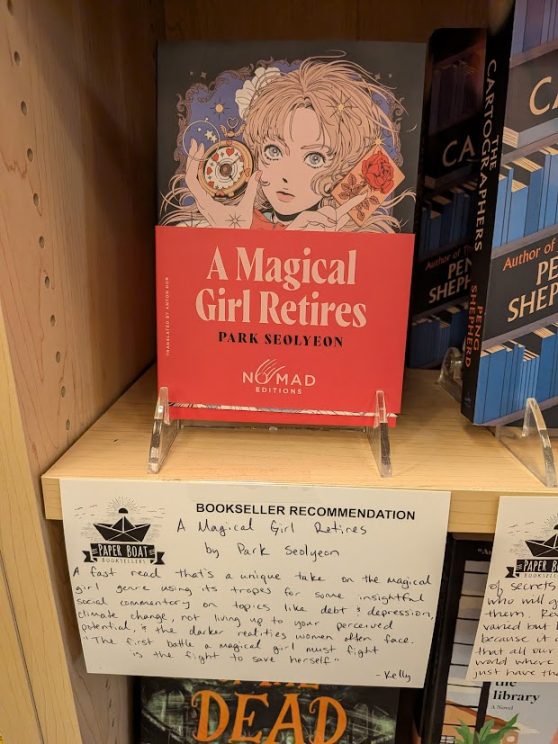 A Magical
Girl Retires
PARK SEOLYEON
TRANSLATED BY ANTON HUR
NOMAD
EDITIONS
THE CARTOGRAPHERS
PENG SHEPHERD
CA
Author of The
PEN
SHEP
CA
Author of
PENG
SHEPH
BOOKSELLER RECOMMENDATION
PAPER BOAT
BOOKSELLERS
A Magical Girl Retires
by Park Seolyeon
A fast read that's a unique take on the magical
girl genre using its tropes for some insightful
social commentary on topics like debt & depression,
climate change, not living up to your perceived
potential, & the darker realities women often face.
"The first battle a magical girl must fight
is the fight to save herself"
- Kelly
PAPER BOAT
BOOKSELLERS
of secrets
who will g
them. R
varied but
because it
that all our
world where
just have th
the
library
A Novel
DEAD